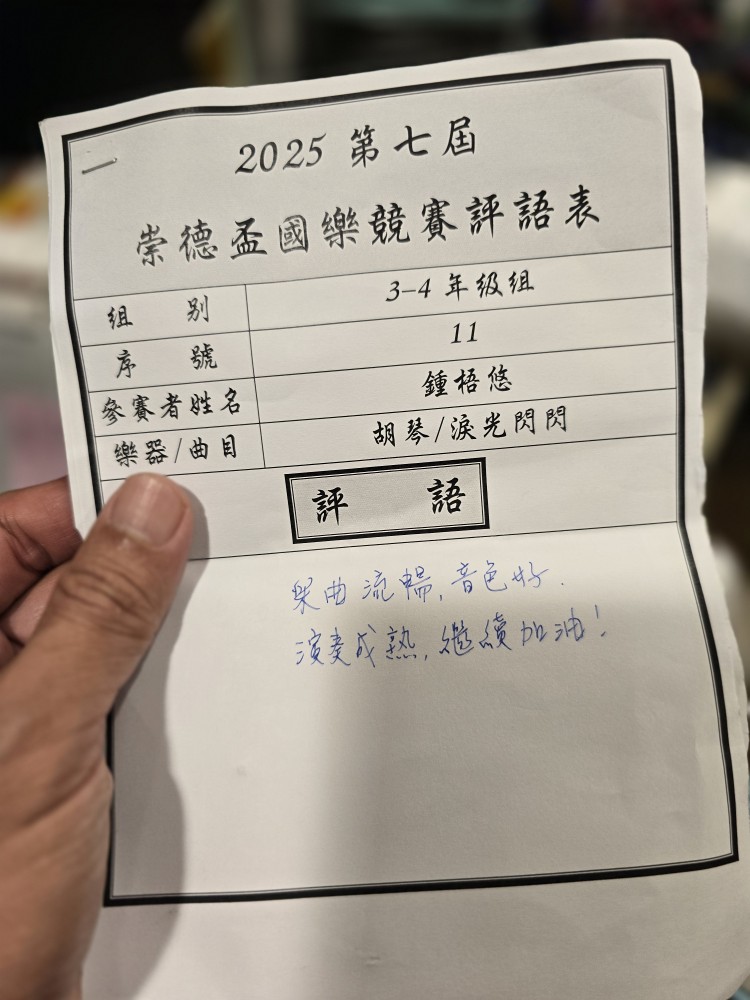 2025 第七屆
崇德盃國樂競賽評語表
组 別 3-4 年級組
序 號 11
參賽者姓名 鍾梧悠
樂器/曲目 胡琴/淚光閃閃
評 語
樂曲流暢,音色好.
演奏成熟,繼續加油!